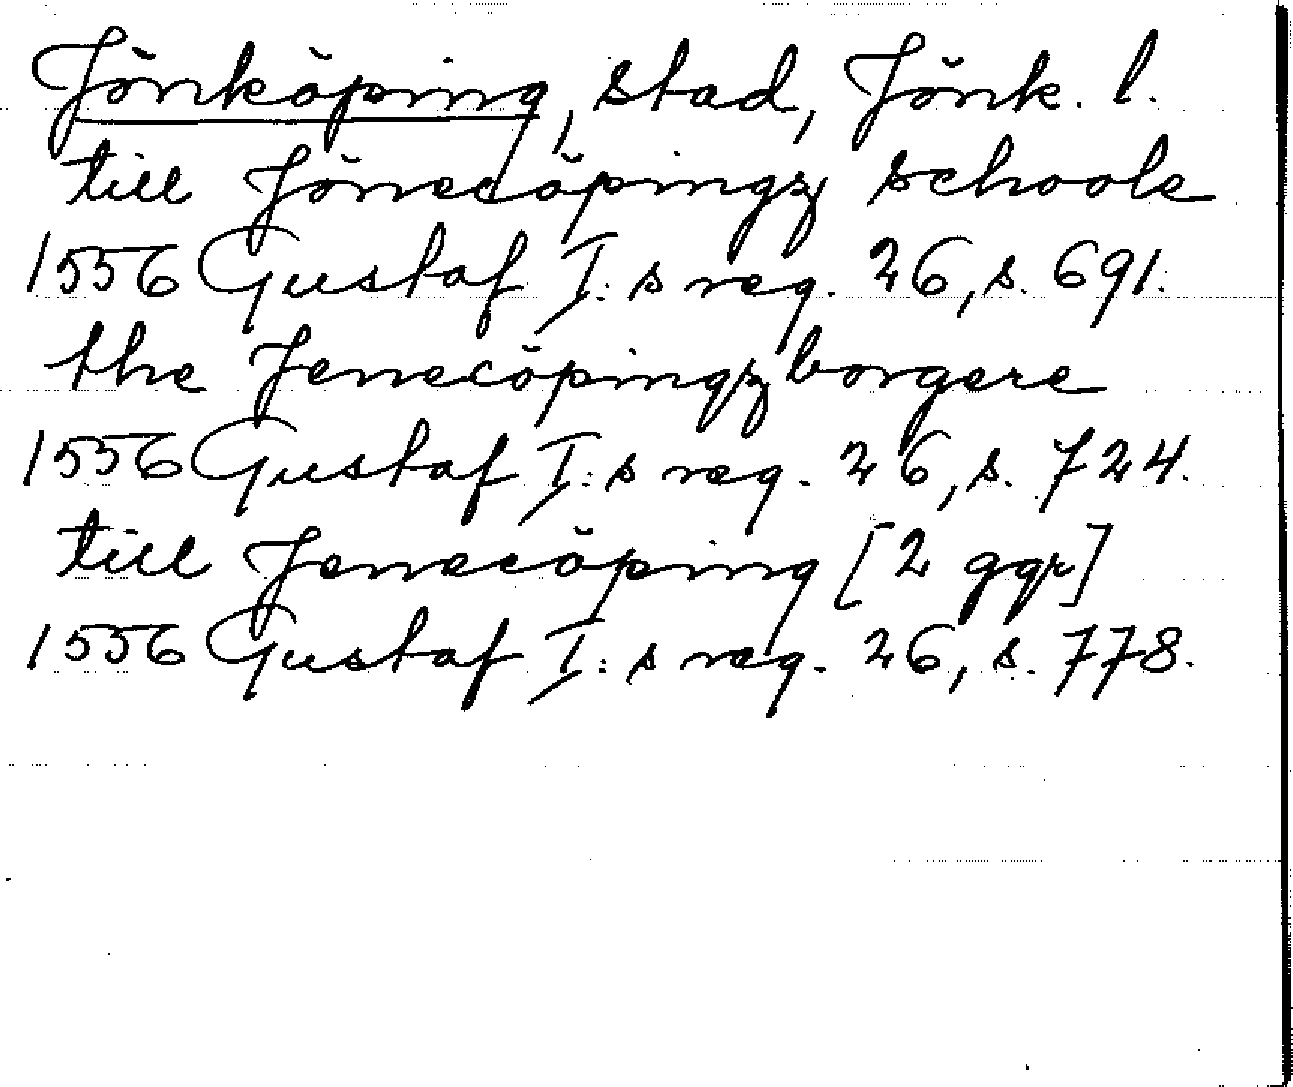 Jönköping, stad, Jönk. l.
till Jönecöpingz schoole
1556 Gustaf I:s reg. 26, s. 691.
the Jenecöpingz borgere
1556 Gustaf I:s reg. 26, s. 724.
till Jenecöping [2 ggr]
1556 Gustaf I:s reg. 26, s. 778.